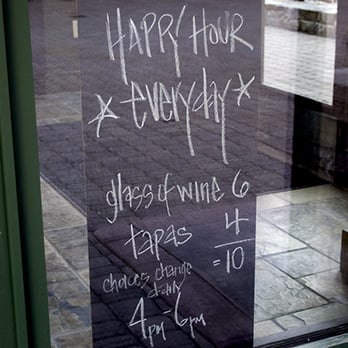 HAPPY HOUR
* everyday *
glass of wine 6
tapas 4
= 10
choices change
daily
4pm - 6pm